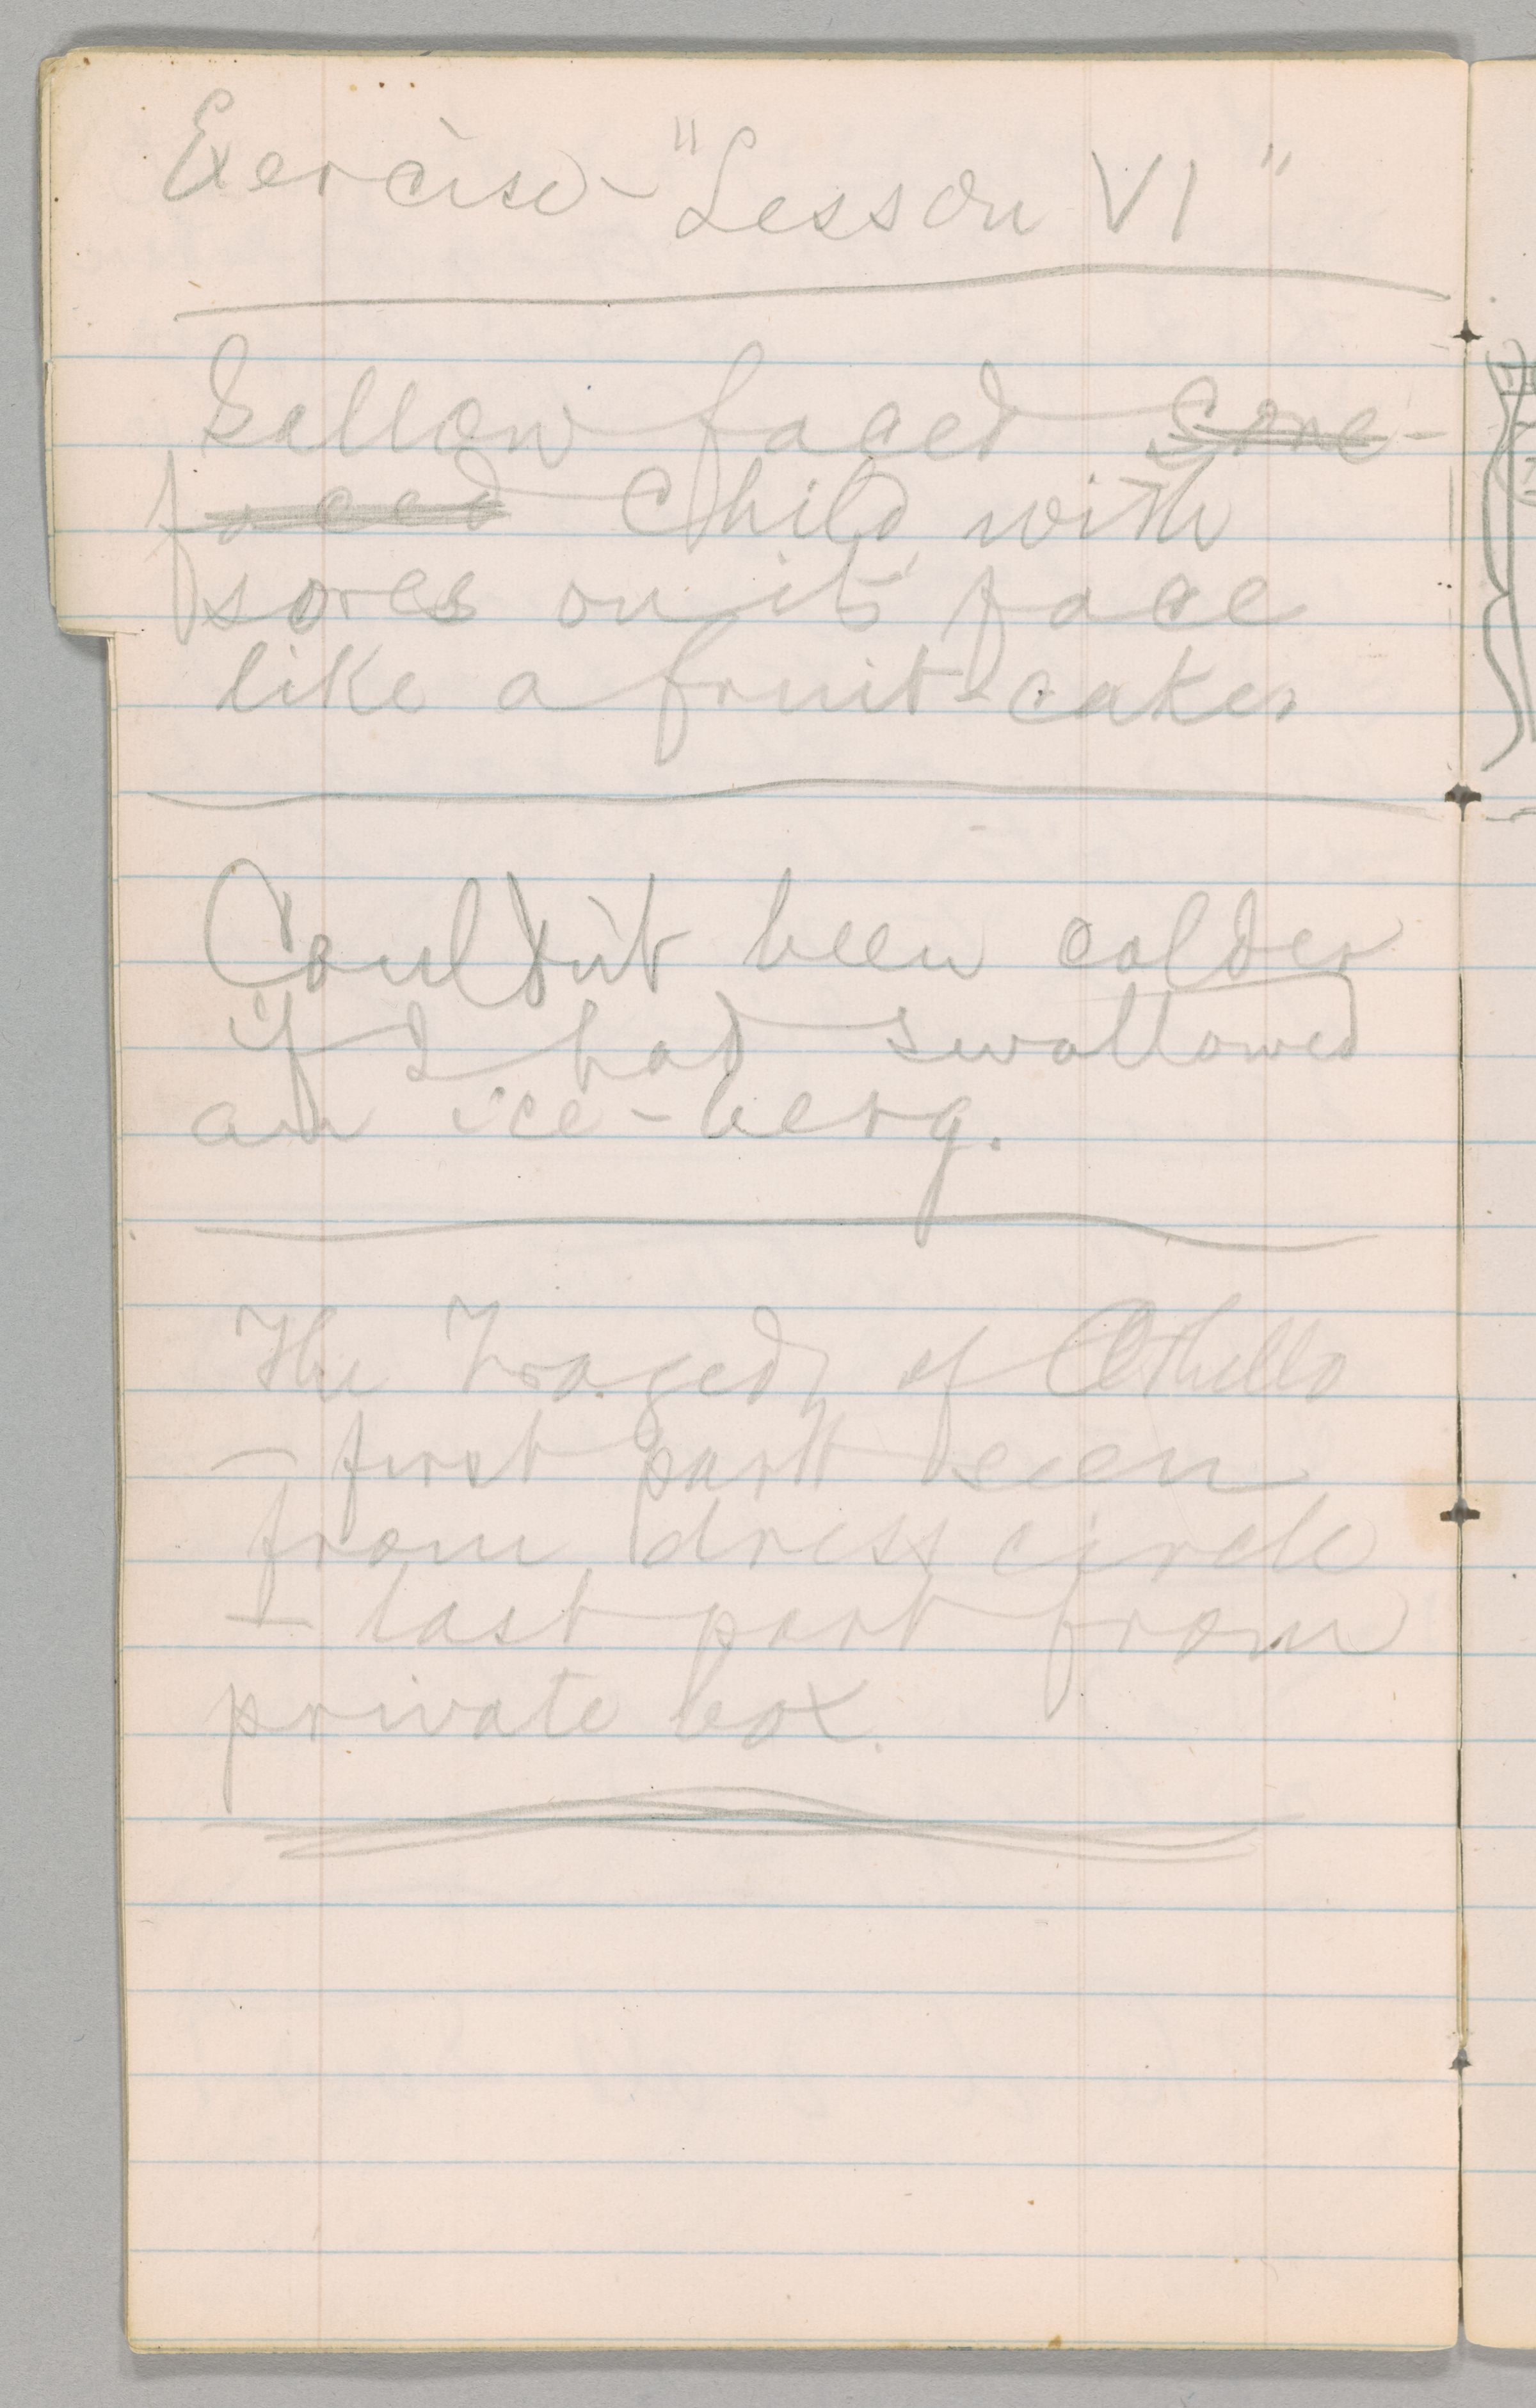 Exercise - "Lesson VI"
Sallow faced Sore-
faced Child with
sores on its face
like a fruit-cake.
Couldn't been colder
if I had swallowed
an ice-berg.
The Tragedy of Othello
- first part seen
from dress circle
- last part from
private box.